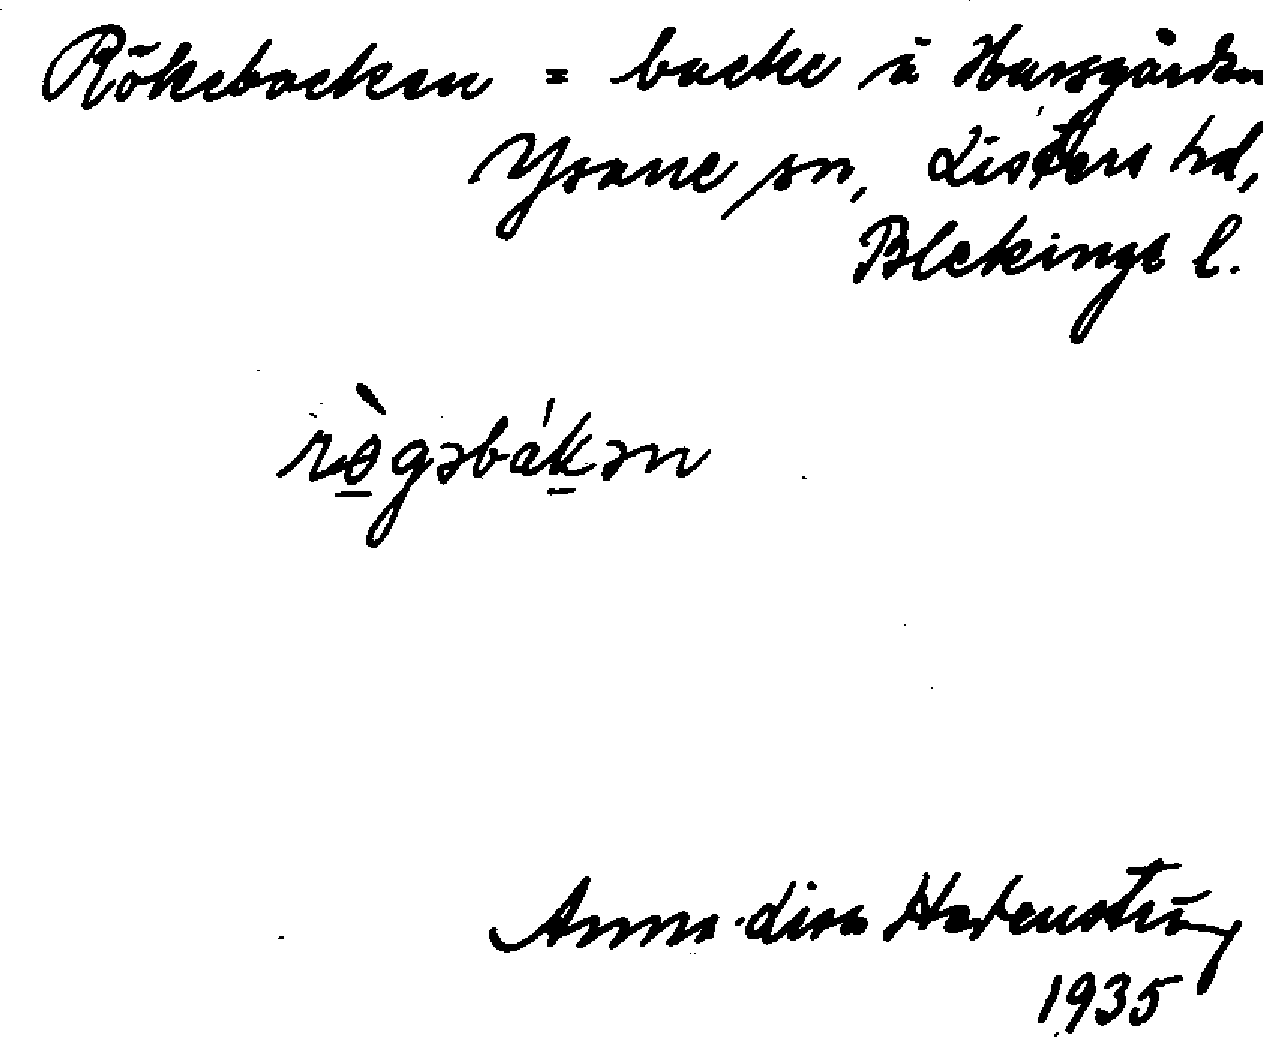 Rökebacken = backe å Husgården
Ysane sn, Listers hd,
Blekinge l.
rø̀gəbákən
Anna-Lisa
1935